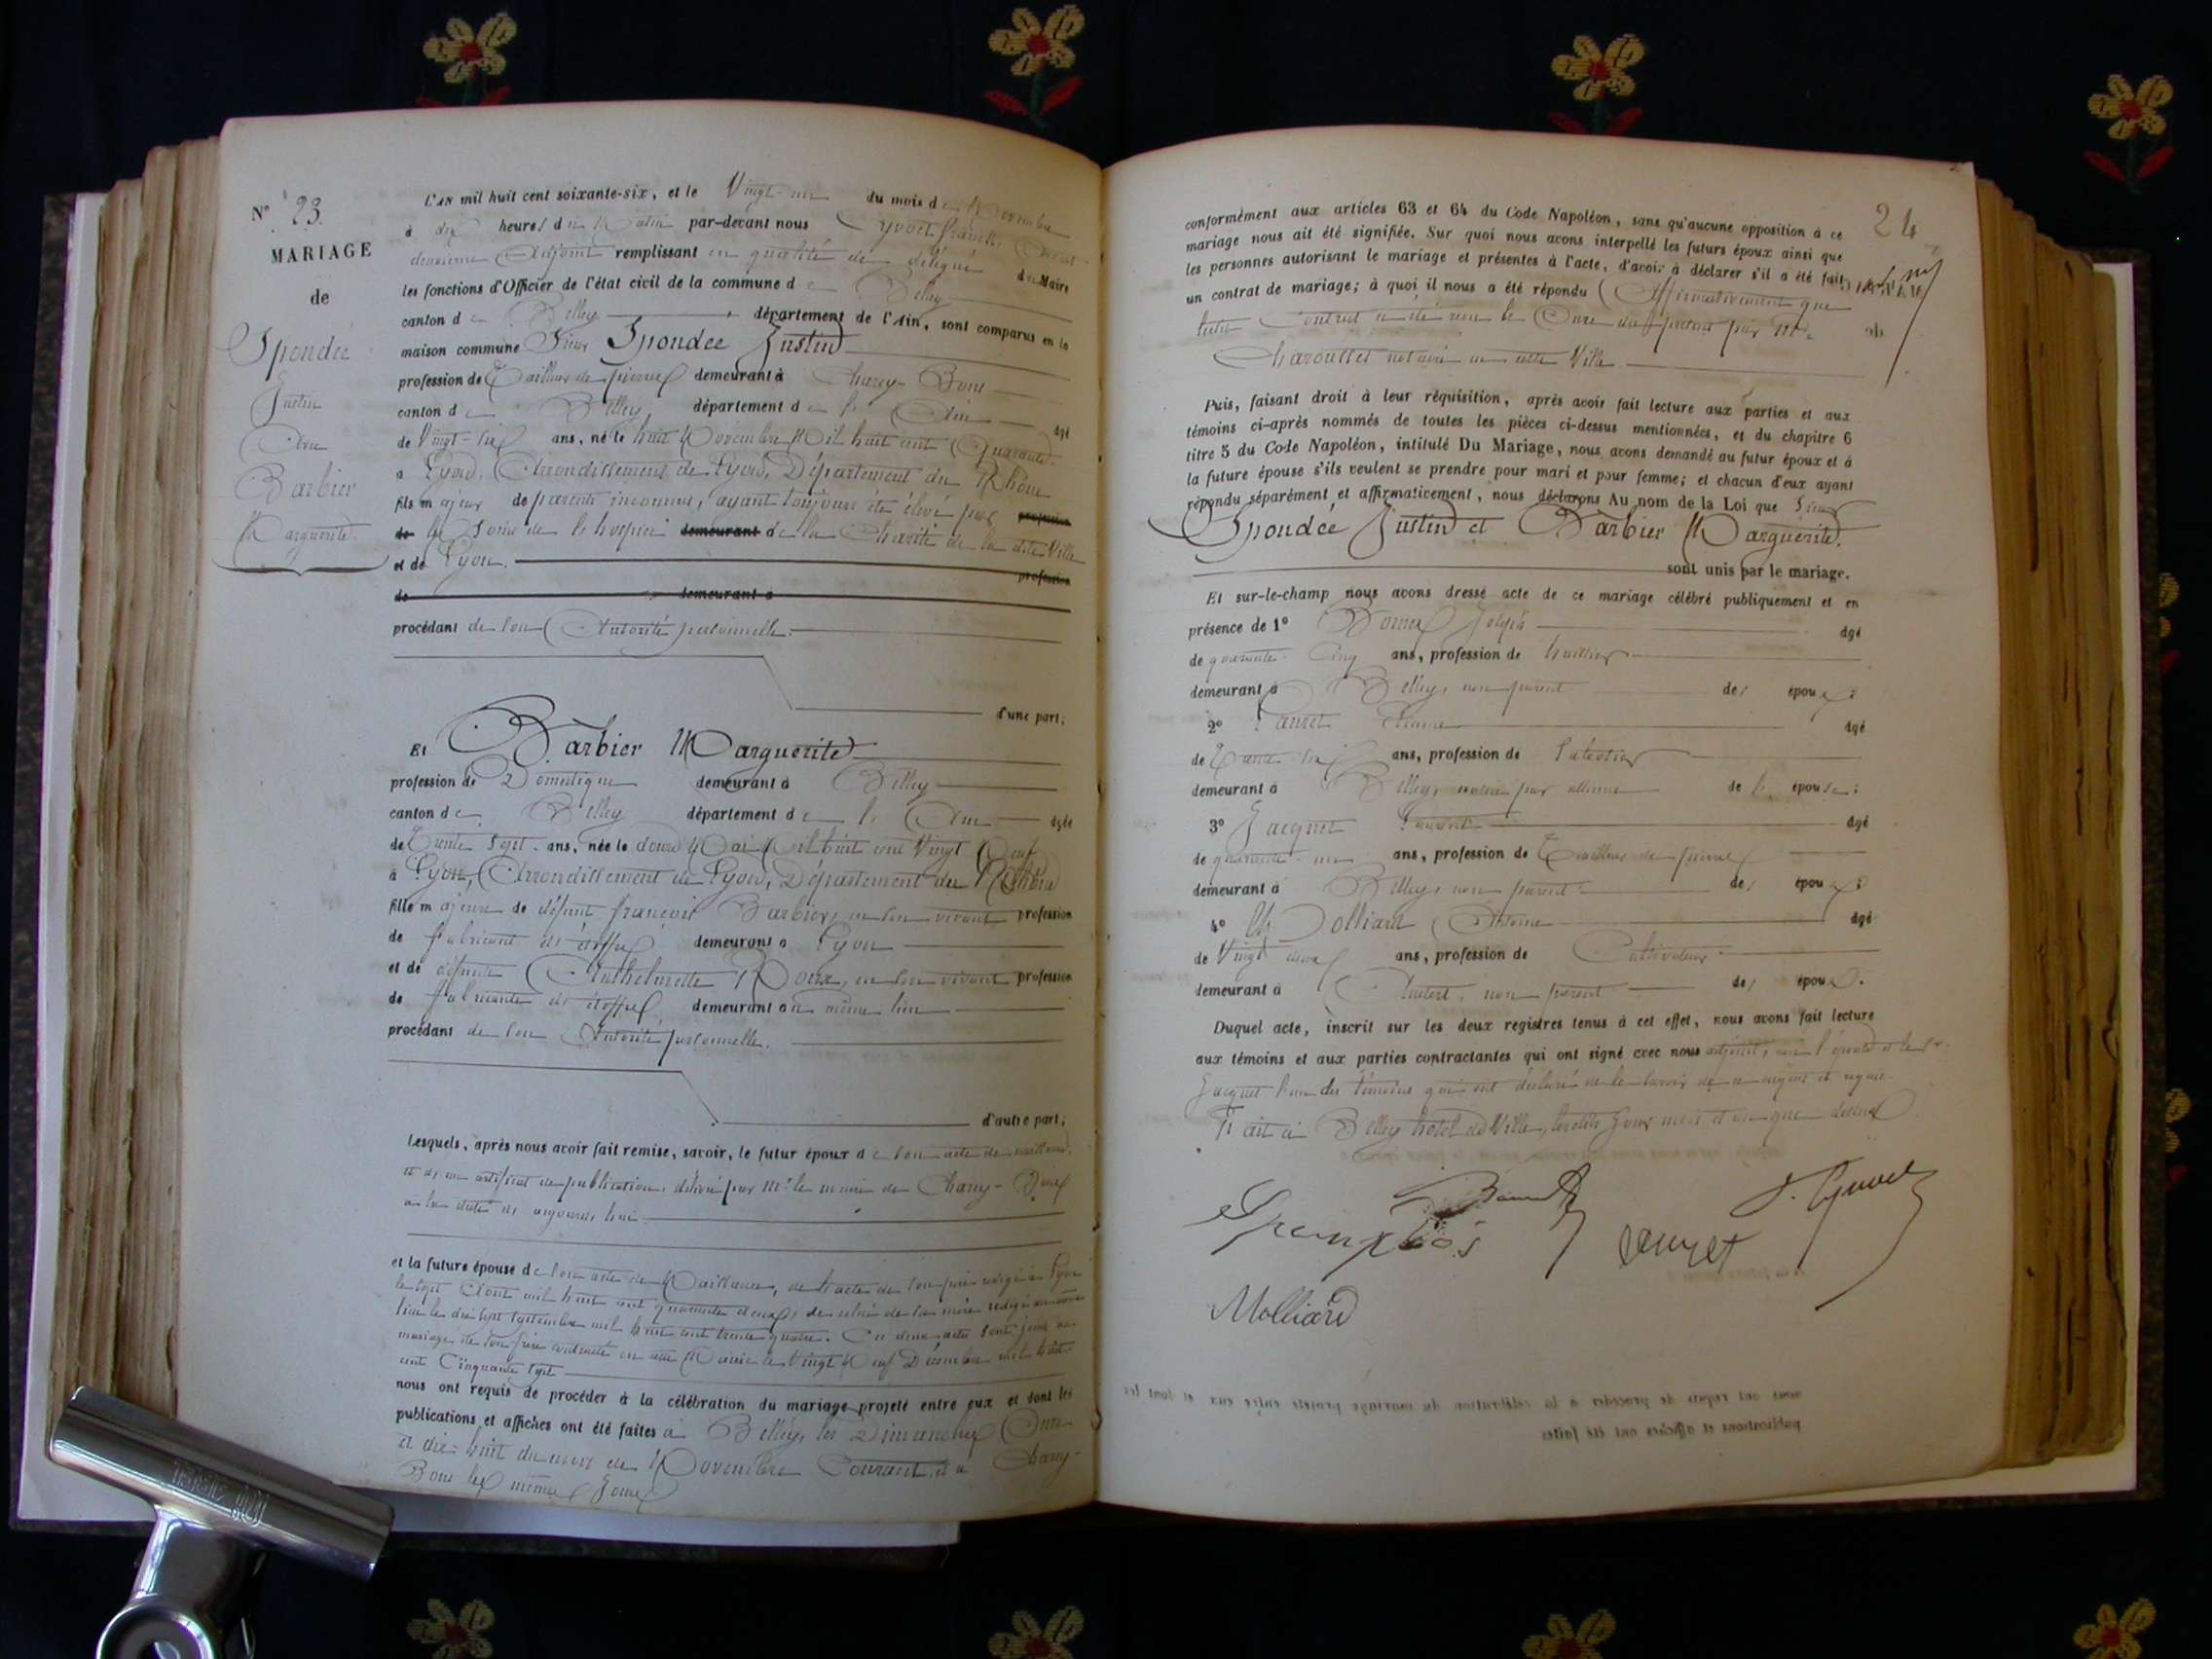 N° 23.
MARIAGE
de
Spondée
Justin
Avec
Barbier
Marguerite
L'AN mil huit cent soixante-six, et le Vingt-un du mois de Novembre
à dix heures du Matin par-devant nous Yvoet
deuxième Adjoint remplissant en qualité de délégué du Maire
les fonctions d'Officier de l'état civil de la commune de Belley
canton de Belley département de l'Ain, sont comparus en la
maison commune Sieur Spondée Justin
profession de Tailleur de pierres demeurant à
canton de Belley département de l'Ain âgé
de Vingt-six ans, né le huit Novembre Mil huit cent Quarante
à Lyon, Arrondissement de Lyon, Département du Rhône
fils majeur de parents inconnus, ayant toujours été élevé par profession
de les Soins de l'hospice demeurant de la Charité de la dite Ville
et de Lyon. profession
de demeurant à
procédant de son Autorité personnelle.
d'une part;
Et Barbier Marguerite
profession de Domestique demeurant à Belley
canton de Belley département de l'Ain âgée
de Trente Sept ans, née le douze Mai Mil huit cent Vingt Neuf
à Lyon, Arrondissement de Lyon, Département du Rhône
fille majeure de défunt françois Barbier, en son vivant profession
de fabricant de demeurant à Lyon
et de défunte Anthelmette Roux, en son vivant profession
de fabricante de demeurant au même lieu
procédant de son Autorité personnelle.
d'autre part;
Lesquels, après nous avoir fait remise, savoir, le futur époux de son acte de naissance,
et d'un certificat de publication, délivré par Mr le maire de
à la date de aujourd'hui
et la future épouse de son acte de Naissance, de l'acte de son père rédigé à Lyon
le sept Août mil huit cent quarante deux, de celui de sa mère rédigé au même
lieu le dix sept septembre mil huit cent trente quatre. Ces deux actes sont joints au
mariage de son frère contracté en cette Mairie le Vingt Neuf Décembre mil huit
cent Cinquante sept
nous ont requis de procéder à la célébration du mariage projeté entre eux et dont les
publications et affiches ont été faites à Belley, les Dimanches Onze
et dix-huit du mois de Novembre Courant et à
les mêmes Jours
24
conformément aux articles 63 et 64 du Code Napoléon, sans qu'aucune opposition à ce
mariage nous ait été signifiée. Sur quoi nous avons interpellé les futurs époux ainsi que
les personnes autorisant le mariage et présentes à l'acte, d'avoir à déclarer s'il a été fait
un contrat de mariage; à quoi il nous a été répondu Affirmativement que
le Onze du par Me
Charousset notaire en cette Ville
Puis, faisant droit à leur réquisition, après avoir fait lecture aux parties et aux
témoins ci-après nommés de toutes les pièces ci-dessus mentionnées, et du chapitre 6
titre 5 du Code Napoléon, intitulé Du Mariage, nous avons demandé au futur époux et à
la future épouse s'ils veulent se prendre pour mari et pour femme; et chacun d'eux ayant
répondu séparément et affirmativement, nous déclarons Au nom de la Loi que Sieur
Spondée Justin et Barbier Marguerite.
sont unis par le mariage.
Et sur-le-champ nous avons dressé acte de ce mariage célébré publiquement et en
présence de 1° Joseph âgé
de quarante-Cinq ans, profession de huissier
demeurant à Belley, non parent des époux;
2° âgé
de Trente six ans, profession de
demeurant à Belley, par alliance de l'épouse;
3° Jacquet âgé
de quarante-un ans, profession de Tailleur de pierres
demeurant à Belley, non parent des époux;
4° Molliard Antoine âgé
de Vingt deux ans, profession de Cultivateur
demeurant à non parent des époux.
Duquel acte, inscrit sur les deux registres tenus à cet effet, nous avons fait lecture
aux témoins et aux parties contractantes qui ont signé avec nous adjoint, non l'épouse et le Sr
Jacquet l'un des témoins qui ont déclaré ne le savoir de ce enquis et requis.
Fait à Belley hôtel de Ville, lesdits Jour mois et an que dessus
Molliard